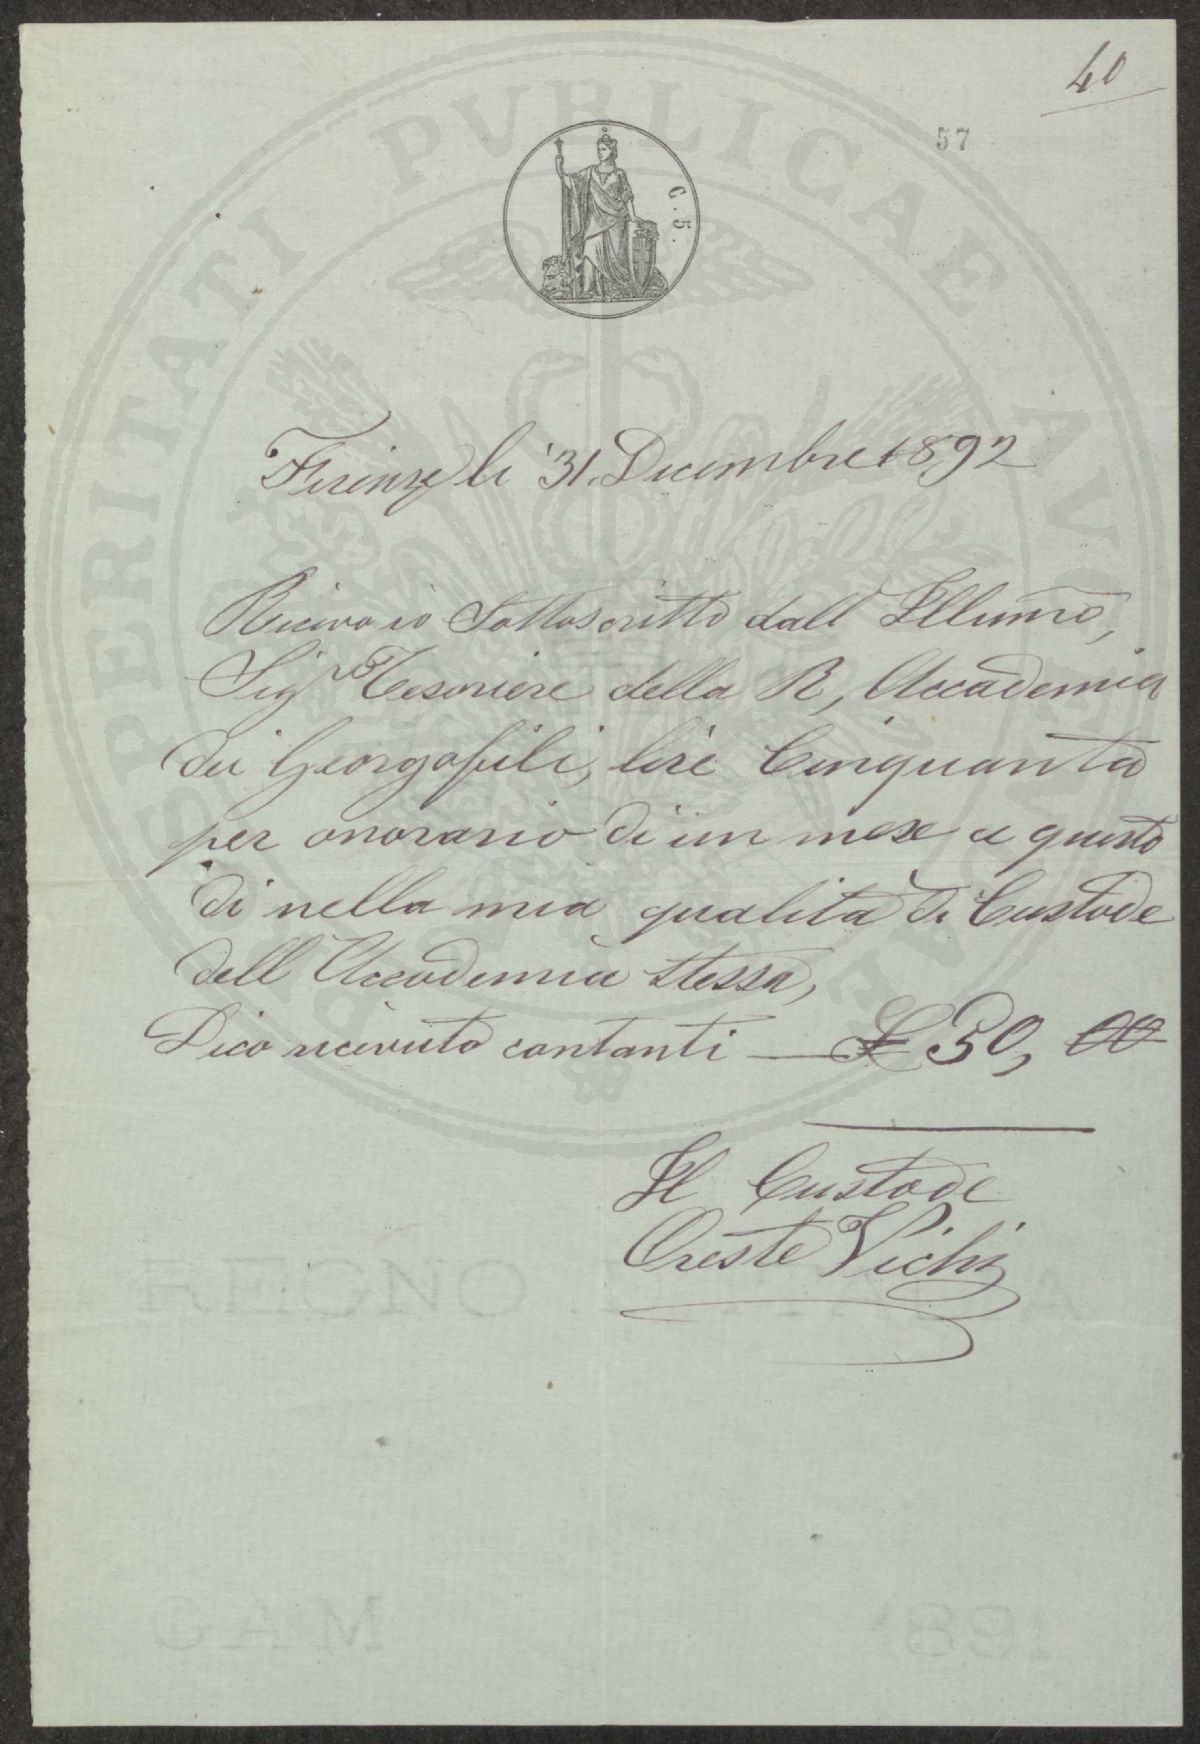 40
57
C. 5.
PROSPERITATI PVBLICAE AVGENDAE
Firenze li 31. Dicembre 1892
Ricevo io Sottoscritto dall' Illumo,
Sigro Tesoriere della R, Accademia
dei Georgofili, lire Cinquanta
per onorario di un mese a questo
di nella mia qualità di Custode
dell' Accademia stessa,
Dico ricevuto contanti — £ 50, 00
Il Custode
Oreste Vichi